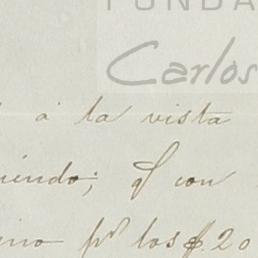 FUNDA
Carlos
á la vista
iendo; q con
pr los $ 20